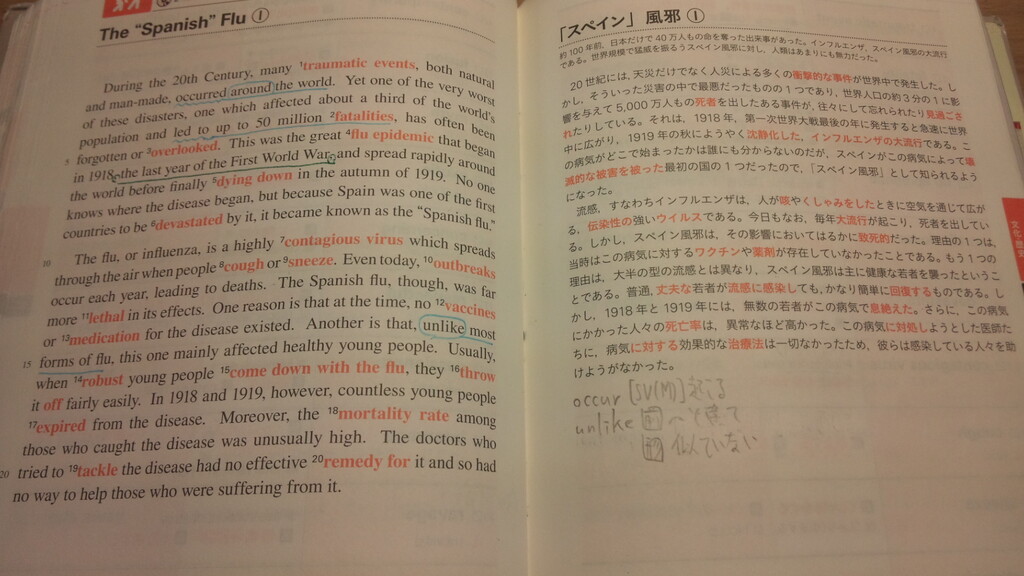 The “Spanish” Flu ①
During the 20th Century, many ¹traumatic events, both natural
and man-made, occurred around the world. Yet one of the very worst
of these disasters, one which affected about a third of the world's
population and led to up to 50 million ²fatalities, has often been
5 forgotten or ³overlooked. This was the great ⁴flu epidemic that began
in 1918, the last year of the First World War, and spread rapidly around
the world before finally ⁵dying down in the autumn of 1919. No one
knows where the disease began, but because Spain was one of the first
countries to be ⁶devastated by it, it became known as the “Spanish flu.”
10 The flu, or influenza, is a highly ⁷contagious virus which spreads
through the air when people ⁸cough or ⁹sneeze. Even today, ¹⁰outbreaks
occur each year, leading to deaths. The Spanish flu, though, was far
more ¹¹lethal in its effects. One reason is that at the time, no ¹²vaccines
or ¹³medication for the disease existed. Another is that, unlike most
15 forms of flu, this one mainly affected healthy young people. Usually,
when ¹⁴robust young people ¹⁵come down with the flu, they ¹⁶throw
it off fairly easily. In 1918 and 1919, however, countless young people
¹⁷expired from the disease. Moreover, the ¹⁸mortality rate among
those who caught the disease was unusually high. The doctors who
20 tried to ¹⁹tackle the disease had no effective ²⁰remedy for it and so had
no way to help those who were suffering from it.
「スペイン」風邪 ①
約100年前、日本だけで40万人もの命を奪った出来事があった。インフルエンザ、スペイン風邪の大流行
である。世界規模で猛威を振るうスペイン風邪に対し、人類はあまりにも無力だった。
20世紀には、天災だけでなく人災による多くの衝撃的な事件が世界中で発生した。し
かし、そういった災害の中で最悪だったものの1つであり、世界人口の約3分の1に影
響を与えて5,000万人もの死者を出したある事件が、往々にして忘れられたり見過ごさ
れたりしている。それは、1918年、第一次世界大戦最後の年に発生すると急速に世界
中に広がり、1919年の秋にようやく沈静化した、インフルエンザの大流行である。こ
の病気がどこで始まったかは誰にも分からないのだが、スペインがこの病気によって壊
滅的な被害を被った最初の国の1つだったので、「スペイン風邪」として知られるよう
になった。
流感、すなわちインフルエンザは、人が咳やくしゃみをしたときに空気を通じて広が
る、伝染性の強いウイルスである。今日もなお、毎年大流行が起こり、死者を出してい
る。しかし、スペイン風邪は、その影響においてはるかに致死的だった。理由の1つは、
当時はこの病気に対するワクチンや薬剤が存在していなかったことである。もう1つの
理由は、大半の型の流感とは異なり、スペイン風邪は主に健康な若者を襲ったというこ
とである。普通、丈夫な若者が流感に感染しても、かなり簡単に回復するものである。し
かし、1918年と1919年には、無数の若者がこの病気で息絶えた。さらに、この病気
にかかった人々の死亡率は、異常なほど高かった。この病気に対処しようとした医師た
ちに、病気に対する効果的な治療法は一切なかったため、彼らは感染している人々を助
けようがなかった。
occur [SV(M)] 起こる
unlike 前 〜と違って
形 似ていない
文化・歴史